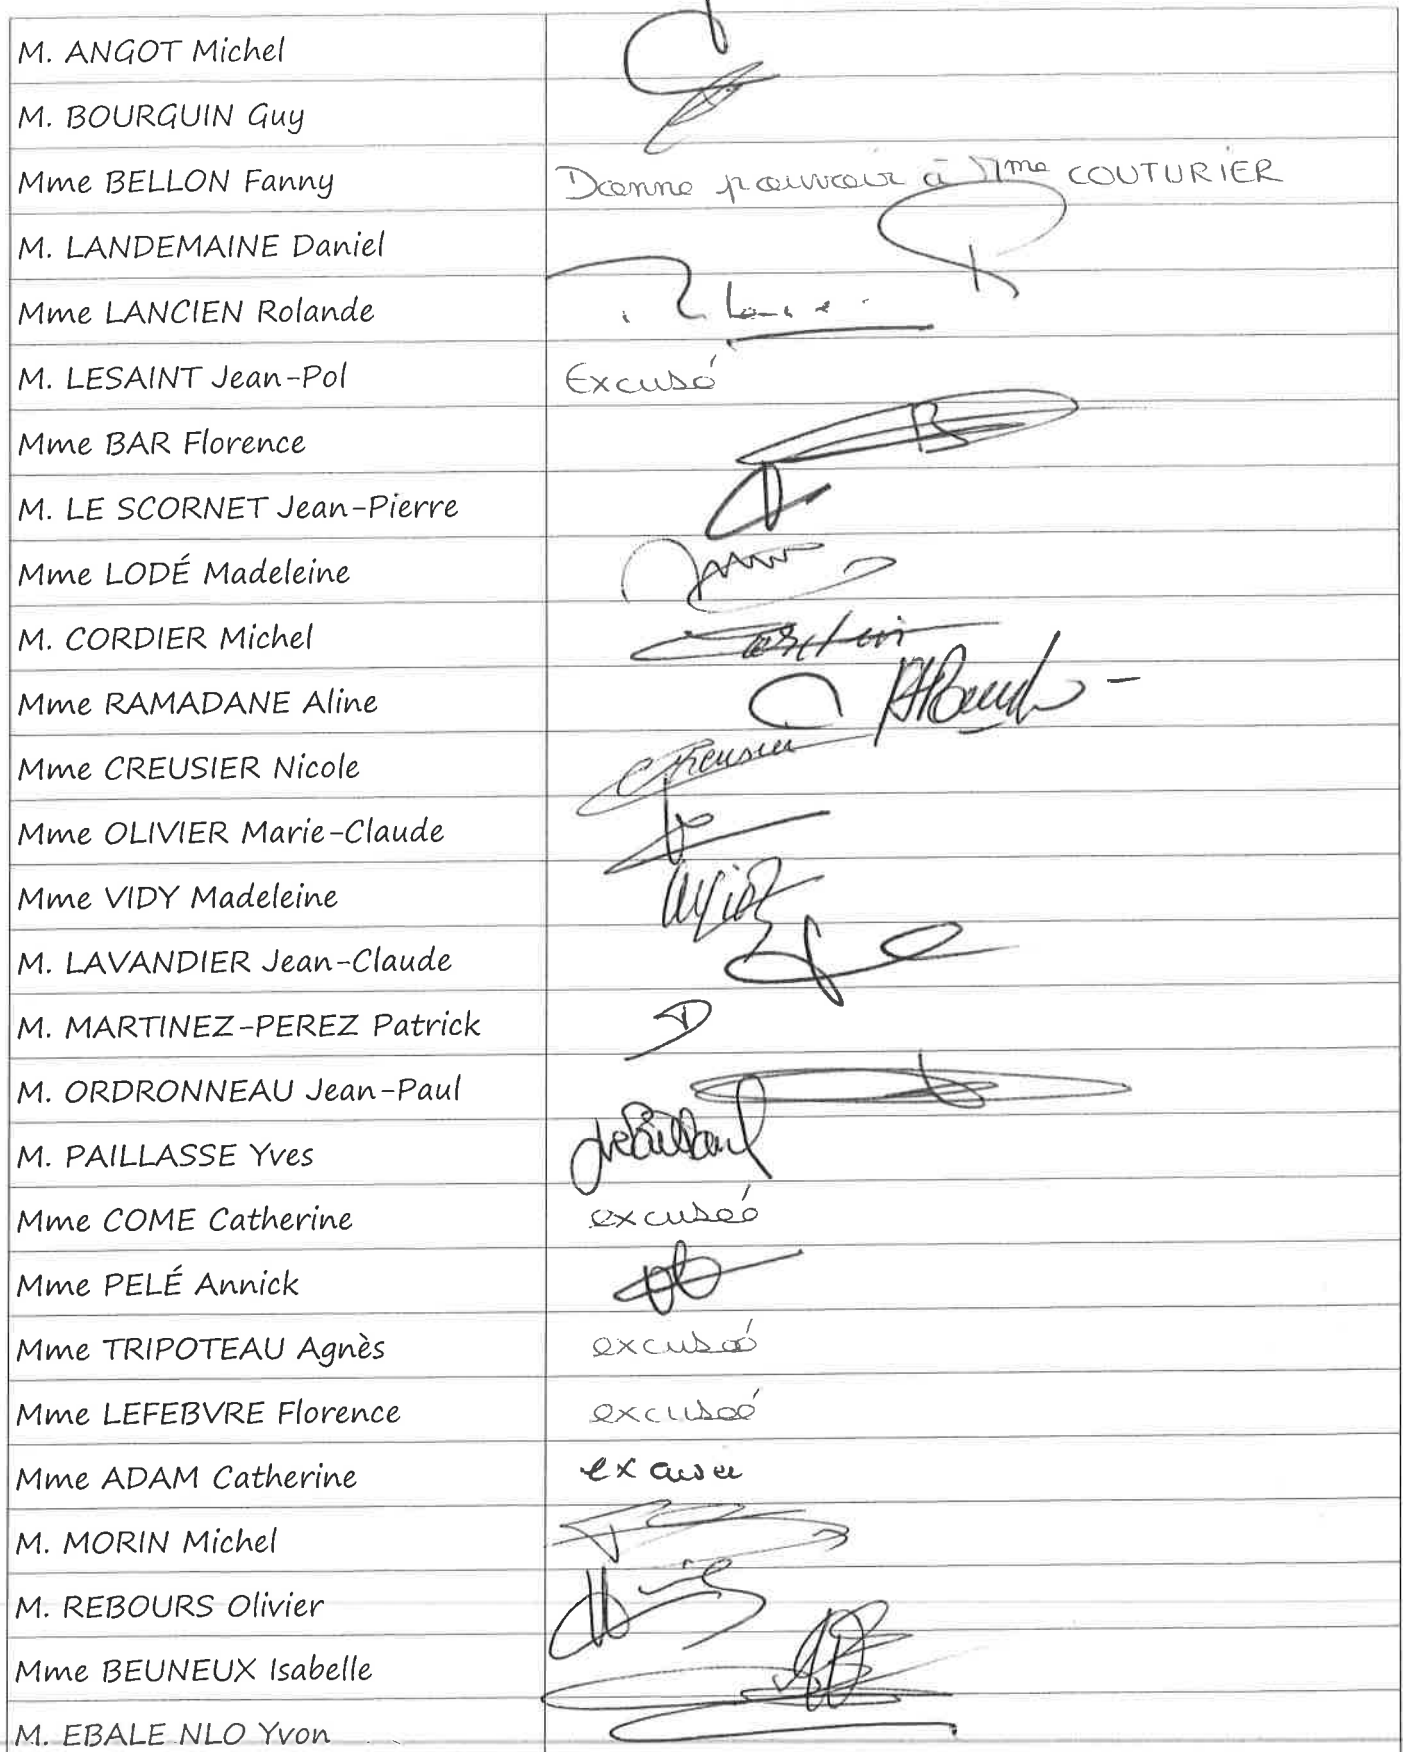 M. ANGOT Michel
M. BOURGUIN Guy
Mme BELLON Fanny Donne pouvoir à Mme COUTURIER
M. LANDEMAINE Daniel
Mme LANCIEN Rolande
M. LESAINT Jean-Pol Excusé
Mme BAR Florence
M. LE SCORNET Jean-Pierre
Mme LODÉ Madeleine
M. CORDIER Michel
Mme RAMADANE Aline
Mme CREUSIER Nicole Creusier
Mme OLIVIER Marie-Claude
Mme VIDY Madeleine
M. LAVANDIER Jean-Claude
M. MARTINEZ-PEREZ Patrick
M. ORDRONNEAU Jean-Paul
M. PAILLASSE Yves
Mme COME Catherine excusée
Mme PELÉ Annick
Mme TRIPOTEAU Agnès excusée
Mme LEFEBVRE Florence excusée
Mme ADAM Catherine excusée
M. MORIN Michel
M. REBOURS Olivier
Mme BEUNEUX Isabelle
M. EBALE NLO Yvon